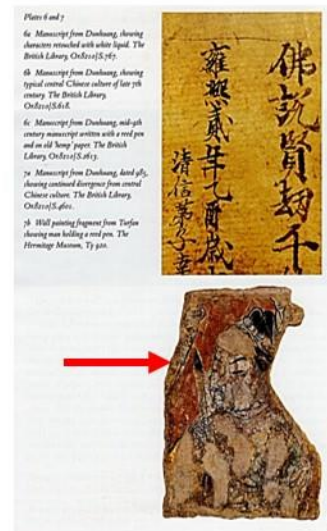 Plates 6 and 7
6a Manuscript from Dunhuang, showing
characters retouched with white liquid. The
British Library, Or.8210/S.767.
6b Manuscript from Dunhuang, showing
typical central Chinese culture of late 7th
century. The British Library,
Or.8210/S.618.
6c Manuscript from Dunhuang, mid-9th
century manuscript written with a reed pen
and on old 'hemp' paper. The British
Library, Or.8210/S.2613.
7a Manuscript from Dunhuang, dated 985,
showing continued divergence from central
Chinese culture. The British Library,
Or.8210/S.4601.
7b Wall painting fragment from Turfan
showing man holding a reed pen. The
Hermitage Museum, Ty 920.
佛說賢劫千
雍熙貳年乙酉歲
清信弟子